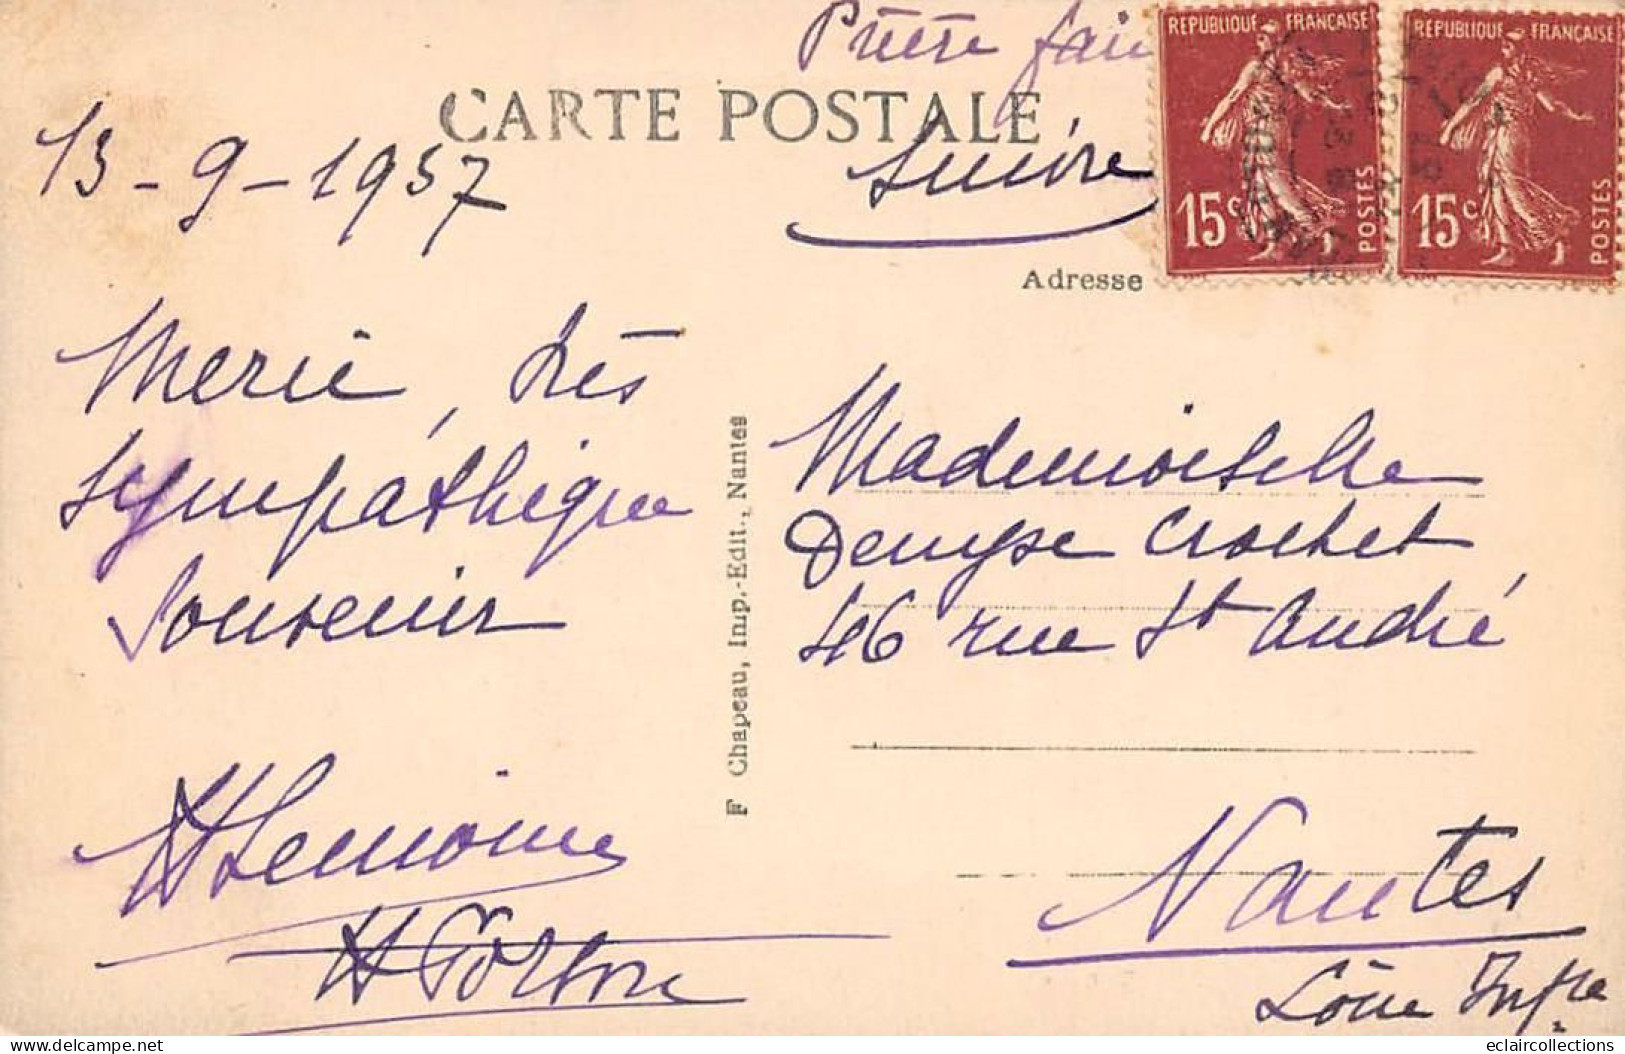 Prière fai
CARTE POSTALE
Suivre
13-9-1937
REPUBLIQUE FRANÇAISE
15c
POSTES
REPUBLIQUE FRANÇAISE
15c
POSTES
Adresse
Merci, très
sympathique
Souvenir
F Chapeau, Imp.-Edit., Nantes
Mademoiselle
Denyse Crochet
46 rue St André
Nantes
Loire Infre
HLemoine
delcampe.net
eclaircollections